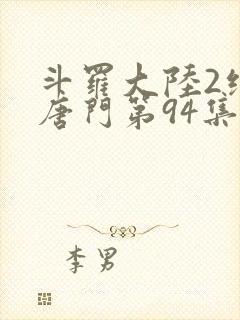 斗羅大陸2
唐門第94集
李男